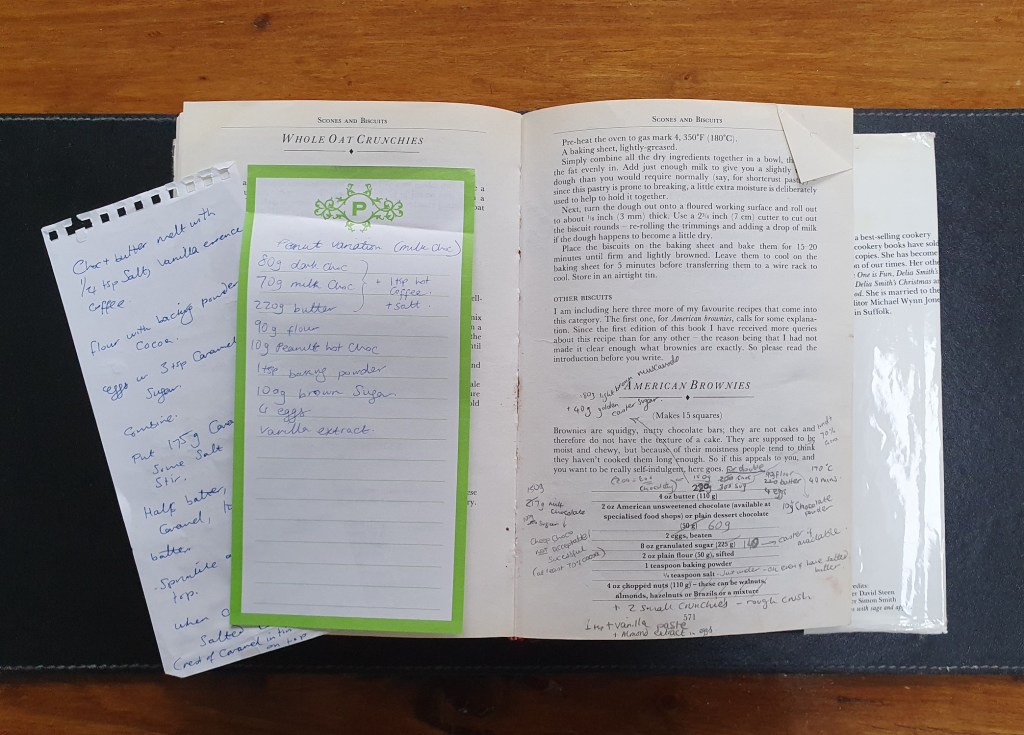 Choc + butter melt with
1/4 tsp Salt, vanilla essence
Coffee
flour with backing powder
Cocoa.
eggs w 3 tsp Caramel
Sugar.
Combine.
Put 175g Cara
Some Salt
Stir.
Half batter,
Caramel,
batter
Sprinkle
top.
when
Salted
(rest of Caramel in
on top
P
Peanut variation (milk choc)
80g dark choc
70g milk choc + 1 tsp hot
coffee.
220g butter + salt
90g flour
10g Peanut hot choc
1 tsp baking powder
100g brown Sugar
4 eggs
Vanilla extract.
SCONES AND BISCUITS
WHOLE OAT CRUNCHIES
SCONES AND BISCUITS
Pre-heat the oven to gas mark 4, 350°F (180°C).
A baking sheet, lightly-greased.
Simply combine all the dry ingredients together in a bowl,
the fat evenly in. Add just enough milk to give you a slightly
dough than you would require normally (say, for shortcrust
since this pastry is prone to breaking, a little extra moisture is deliberately
used to help to hold it together.
Next, turn the dough out onto a floured working surface and roll out
to about 1/8 inch (3 mm) thick. Use a 2¾ inch (7 cm) cutter to cut out
the biscuit rounds – re-rolling the trimmings and adding a drop of milk
if the dough happens to become a little dry.
Place the biscuits on the baking sheet and bake them for 15-20
minutes until firm and lightly browned. Leave them to cool on the
baking sheet for 5 minutes before transferring them to a wire rack to
cool. Store in an airtight tin.
OTHER BISCUITS
I am including here three more of my favourite recipes that come into
this category. The first one, for American brownies, calls for some explana-
tion. Since the first edition of this book I have received more queries
about this recipe than for any other – the reason being that I had not
made it clear enough what brownies are exactly. So please read the
introduction before you write.
80g light brown muscovado
+ 40g golden caster sugar
AMERICAN BROWNIES
(Makes 15 squares)
Brownies are squidgy, nutty chocolate bars; they are not cakes and
therefore do not have the texture of a cake. They are supposed to be
moist and chewy, but because of their moistness people tend to think
they haven't cooked them long enough. So if this appeals to you, and
you want to be really self-indulgent, here goes. For double
70%
4 oz butter (110 g)
2 oz American unsweetened chocolate (available at
specialised food shops) or plain dessert chocolate
(50 g) 60g
2 eggs, beaten
8 oz granulated sugar (225 g) caster if
available
2 oz plain flour (50 g), sifted
1 teaspoon baking powder
¼ teaspoon salt
butter
4 oz chopped nuts (110 g) – these can be walnuts,
almonds, hazelnuts or Brazils or a mixture
+ 2 small crunchies – rough crush
571
+ vanilla paste
+ Almond extract
150g
Chocolate
Sugar
Cheap Choc
not acceptable!
Successful
(at least 70% cocoa)
220 butter
4 eggs
40 mins
10g Chocolate
powder
a best-selling cookery
cookery books have sold
copies. She has become
n of our times. Her othe
One is Fun, Delia Smith's
Delia Smith's Christmas a
od. She is married to the
ditor Michael Wynn Jone
in Suffolk.
David Steen
r Simon Smith
with sage and